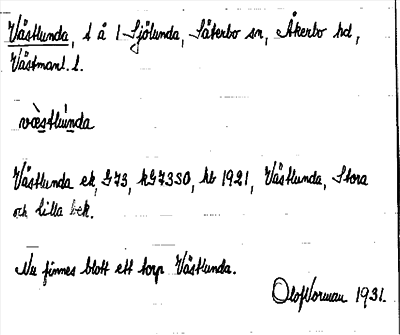 Västlunda, t å 1 Sjölunda, Säterbo sn, Åkerbo hd,
Västmanl. l.
væstlunda
Västlunda ek, G73, hG73SO, hb 1921, Västlunda, Stora
och Lilla bek.
Nu finnes blott ett torp Västlunda.
Olof Norman 1931.